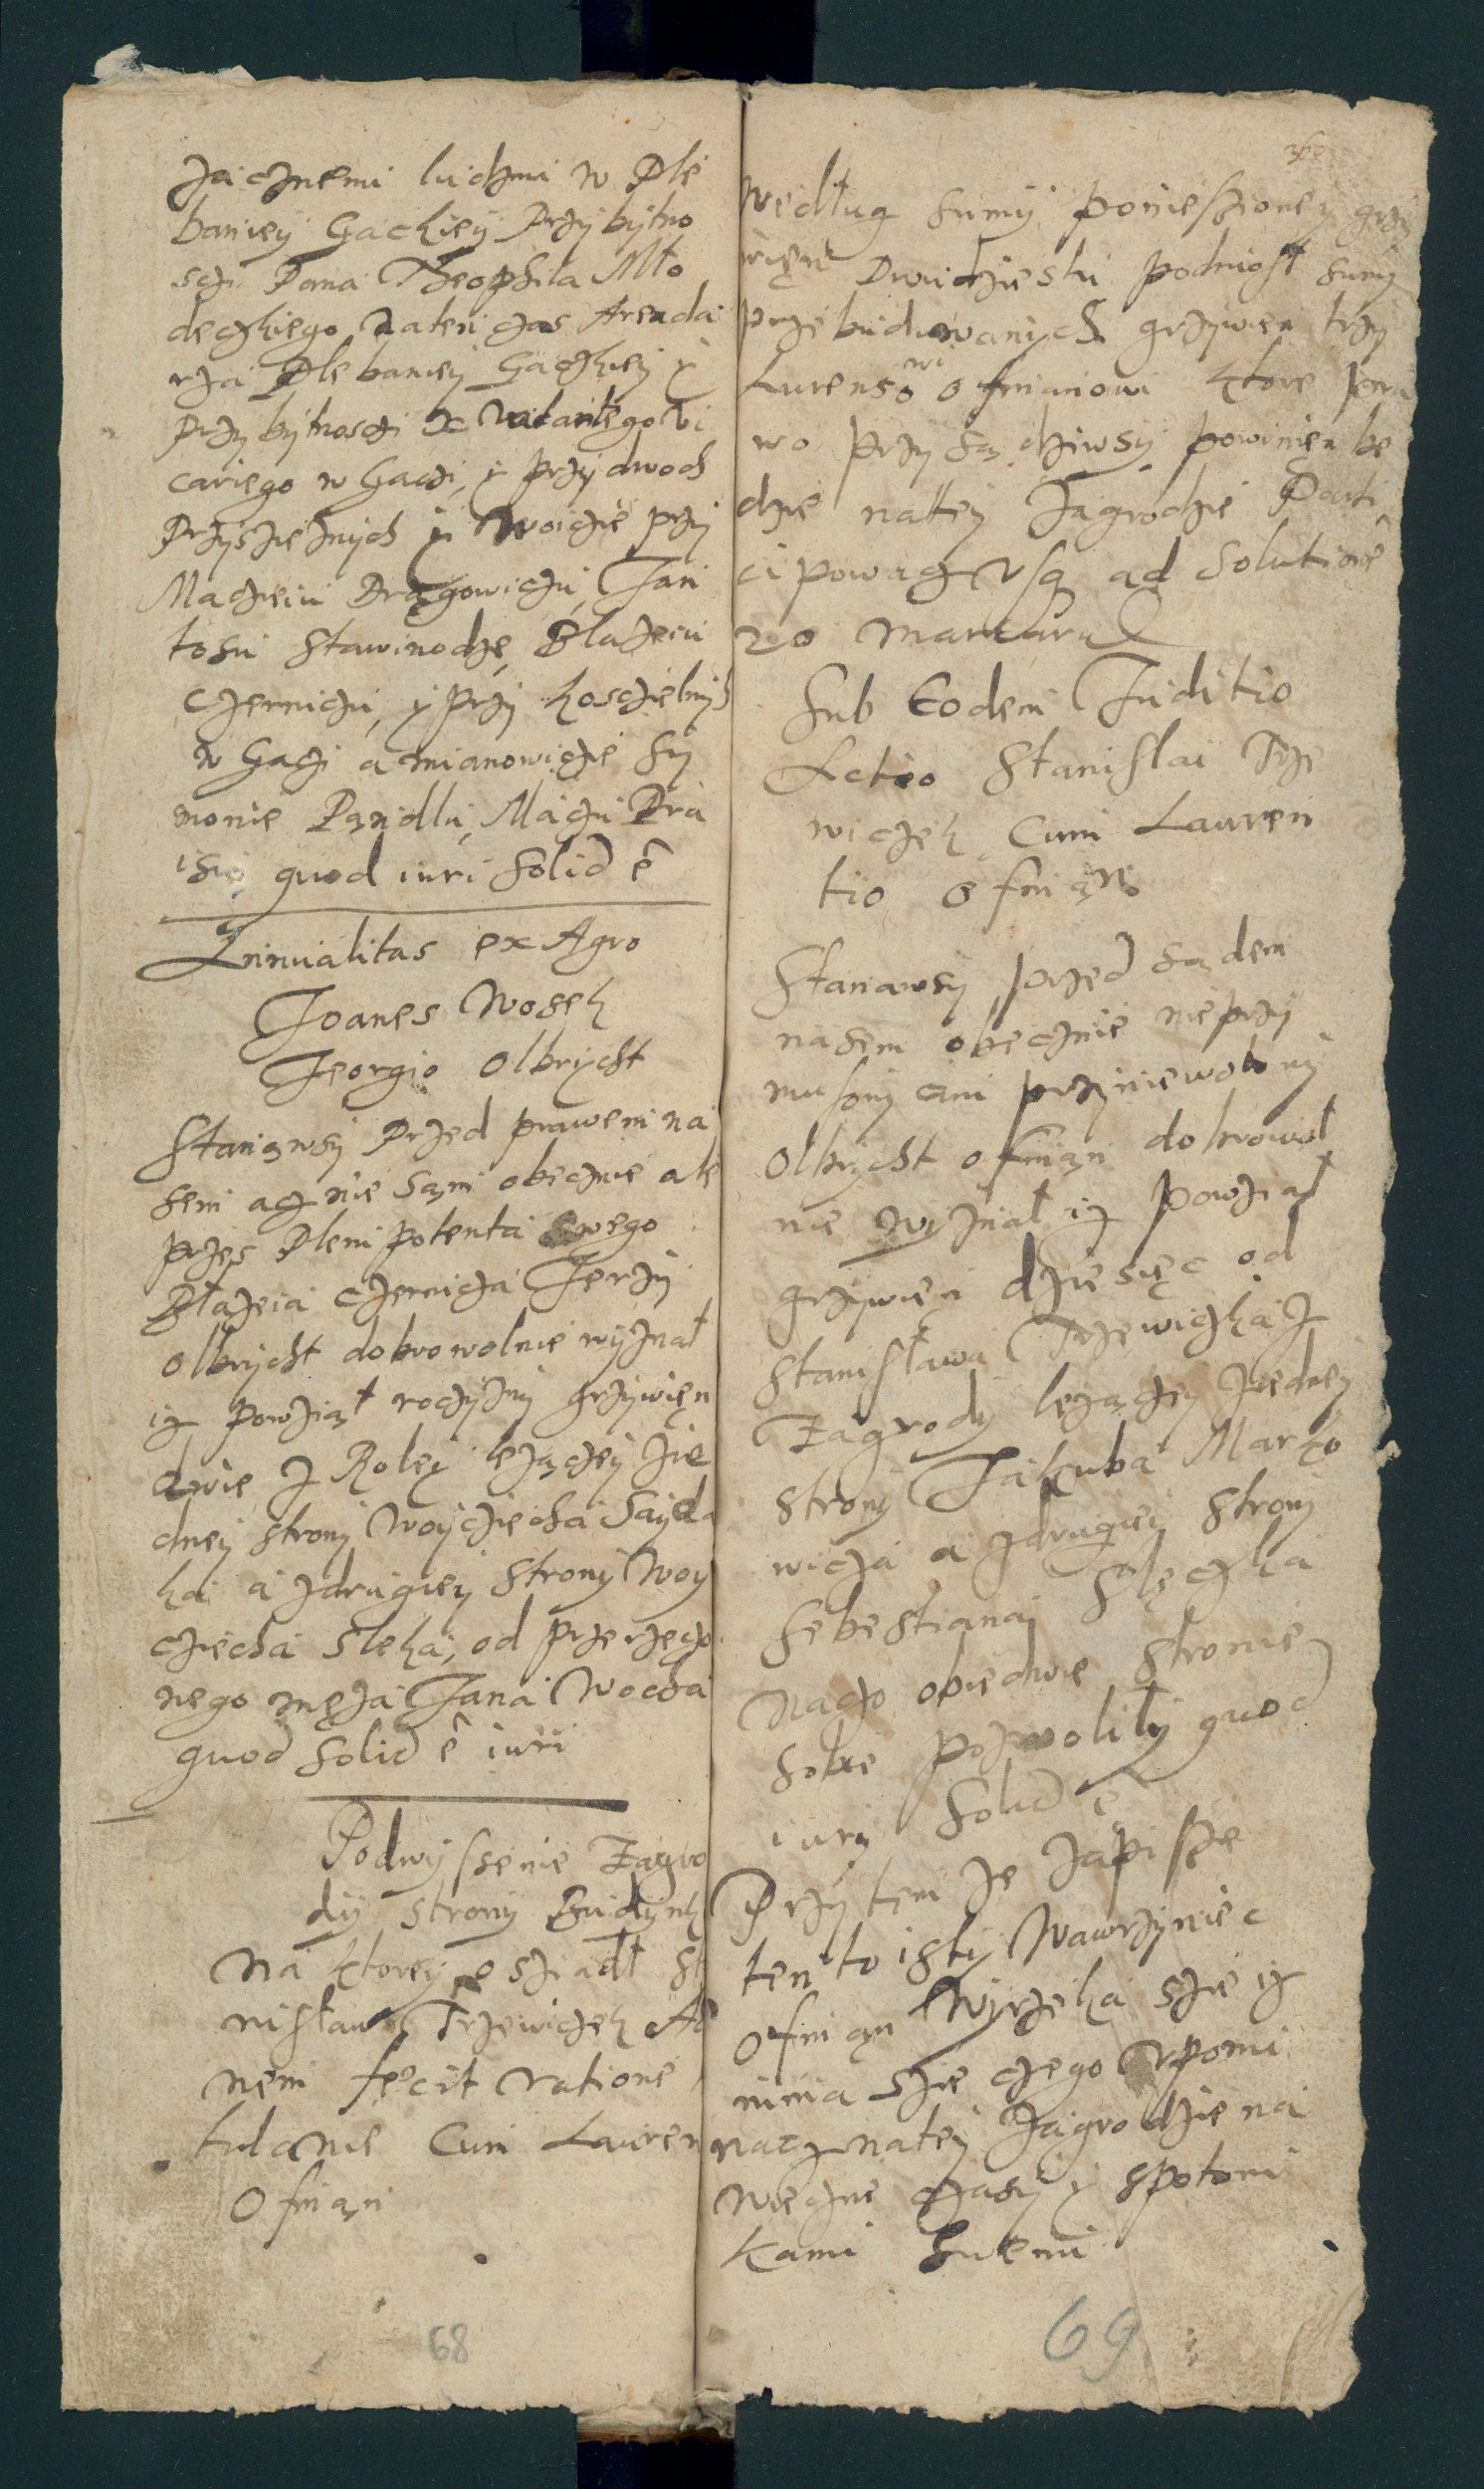 zacznemi ludzmi w Ple
baniey Gackiey Przybytno
sczi Pana Theophila Mło
deczkiego naten czas Arenda
rza Plebaniey Gaczkiey y
przybytnosczi X Walantego Vi
cariego w Gaci, y przy dwoch
Przysieznych y Woicie przy
Macieiu Drągowiczu, Jan
tosu Stawinodze, Blazeiu
Czernichu, y przy koscielnych
w Gaci a mianowicie Sy
monie Pąndlu, Maczu Dra
isię quod iuri solid ê
Annualitas ex Agro
Joanes Wosek
Jeorgio Olbrycht
Staniąwsy Przed prawem na
sem acz nie sąm obecnie ale
przes Plenipotenta swego
Błazeia Czernicha Jerzy
Olbrycht dobrowolnie wyznał
iz powziął roczyzny grzywięn
dwie z Roley lezączey zie
dney strony Woyciecha Sayda
ka a zdrugiey strony Woy
ciecha Sleka, od przerzeczo
nego męza Jana Wocha
quod solid ê iuri
Podwyssenie Zagro
dy strony Budynk
na ktorey osziadł St
nisław Trzewiczek A
nem fecit ratione
tulanie Cum Lauren
Ofmąn
68
według sumy poniesioney grzy
więn Dwudziestu podniosł sumy
przebudowanych grzywien trzy
Lurensowi Ofmanowi ktore pra
wo przysądziwsy powinien be
dzie nattey Zagrodzie Parti
cipowacz Usq ad Solutione
20 Marcaru
Sub Eodem Juditio
Actio Stanislai Trze
wiczek Cum Lauren
tio Ofmąno
Stanawsy przed sądem
nasem obecznie nieprzy
musony ani przyniewolony
Olbrycht Ofmąn dobrowol
nie wyznał iz powział
grzywien dziesięc od
Stanisława Trzewiczka z
Zagrody lezączey ziedney
strony Jakuba Marko
wicza a zdrugiey strony
Sebestiana Slęczka
Naczo obiedwie stronie
sobie pozwoliły quod
iury solid ê
Przytem ze zapisze
ten to isty Wawrzyniec
Ofmąn Wyrzeka szie iz
nima szie czego upomi
nacz natey zagrodzie na
wieczne czasy y spotom
kami swemi
69